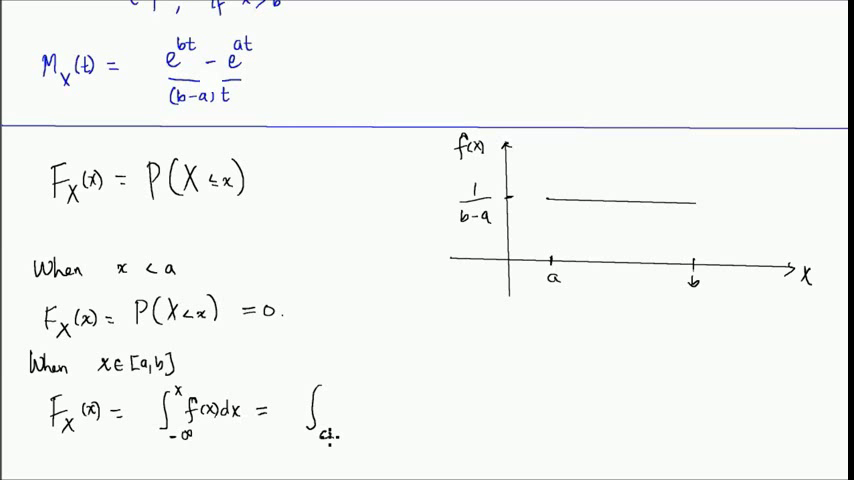 1, if x>b
M_X(t) = (e^{bt} - e^{at}) / ((b-a)t)
F_X(x) = P(X ≤ x)
When x < a
F_X(x) = P(X < x) = 0.
When x ∈ [a,b]
F_X(x) = ∫_{-∞}^{x} f(x)dx = ∫_{a}
f(x)
1/(b-a)
a b X